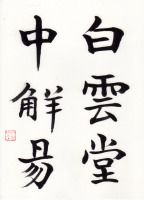 白雲堂
中觧易